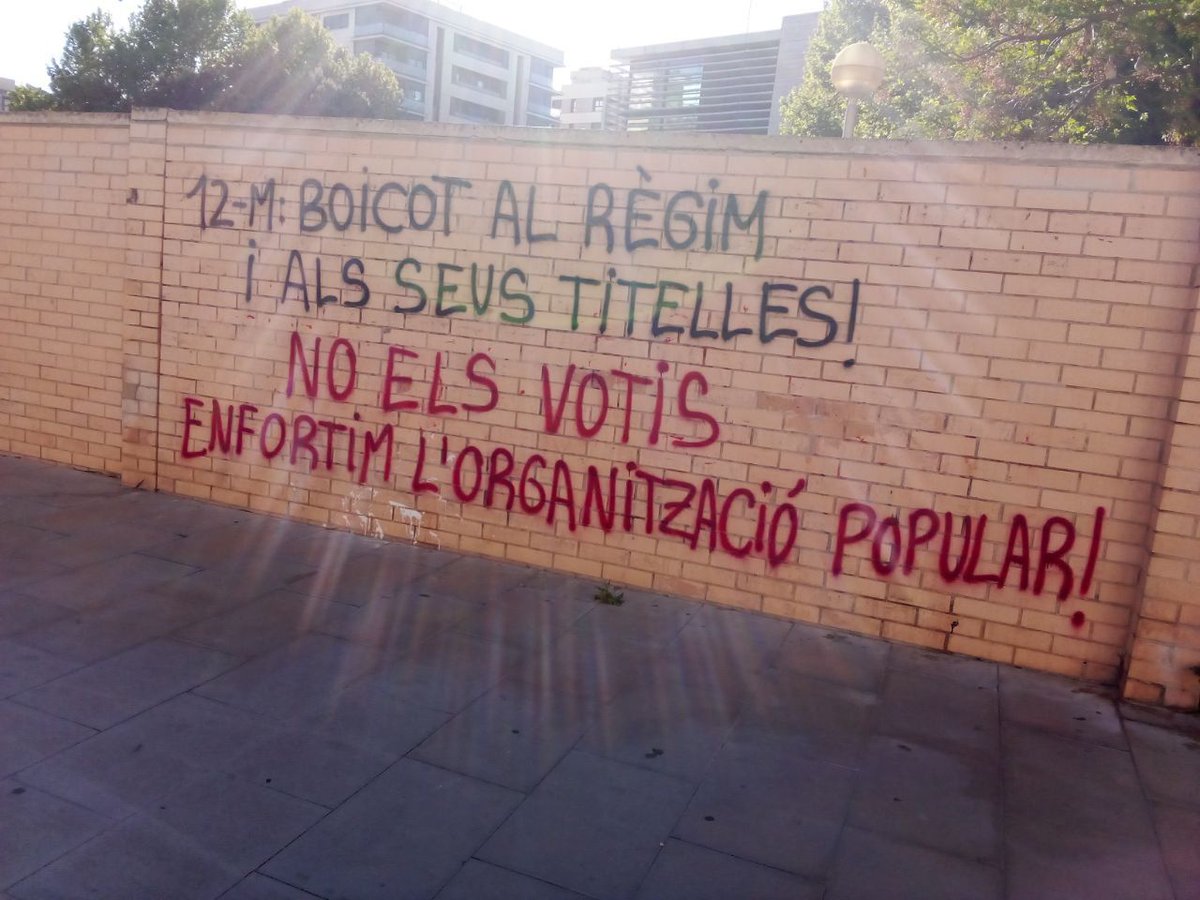 12-M: BOiCOT AL RÈGiM
i ALS SEUS TiTELLES!
NO ELS VOTiS
ENFORTiM L'ORGANiTZACiÓ POPULAR!